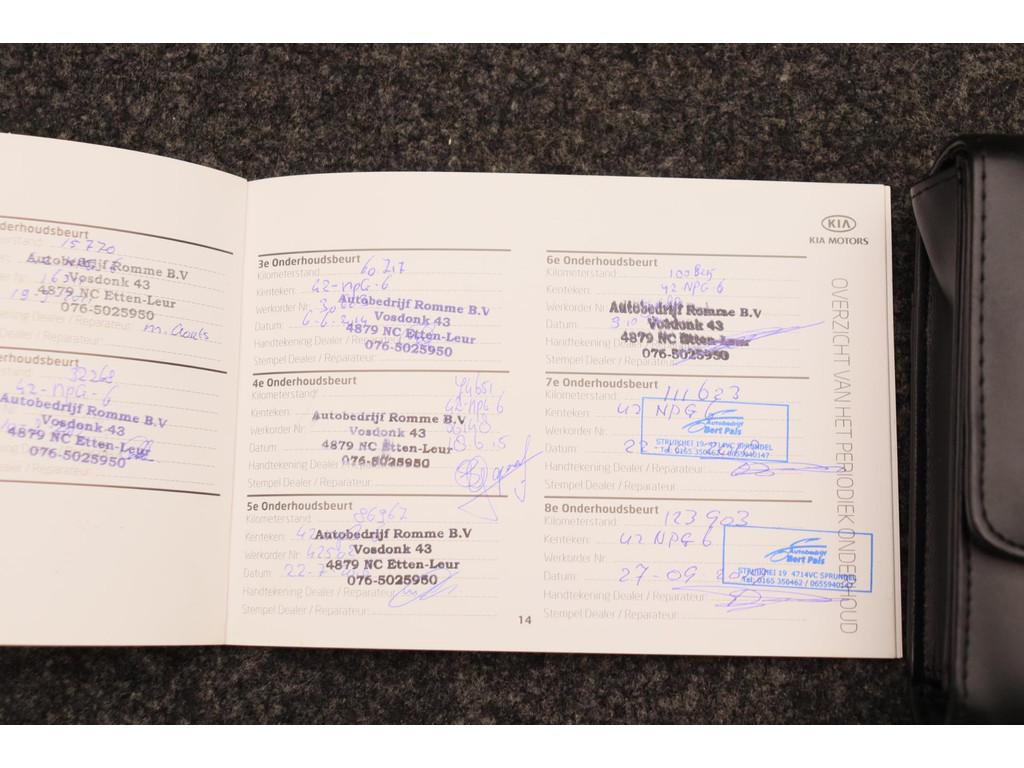 derhoudsbeurt
15770
Autobedrijf Romme B.V
Vosdonk 43
4879 NC Etten-Leur
076-5025950
Dealer / Reparateur:
erhoudsbeurt
32268
42-NPG-6
Autobedrijf Romme B.V
Vosdonk 43
4879 NC Etten-Leur
076-5025950
Dealer / Reparateur:
3e Onderhoudsbeurt
Kilometerstand:
Kenteken: 42-NPG-6
Werkorder Nr:
Autobedrijf Romme B.V
Datum:
Vosdonk 43
Handtekening Dealer / Reparateur:
4879 NC Etten-Leur
076-5025950
Stempel Dealer / Reparateur:
4e Onderhoudsbeurt
Kilometerstand:
Kenteken: 42-NPG-6
Autobedrijf Romme B.V
Werkorder Nr:
Vosdonk 43
Datum:
4879 NC Etten-Leur
076-5025950
Handtekening Dealer / Reparateur:
Stempel Dealer / Reparateur:
5e Onderhoudsbeurt
Kilometerstand: 86967
Kenteken:
Autobedrijf Romme B.V
Werkorder Nr:
Vosdonk 43
4879 NC Etten-Leur
Datum: 22-7
076-5025950
Handtekening Dealer / Reparateur:
Stempel Dealer / Reparateur:
14
KIA
KIA MOTORS
6e Onderhoudsbeurt
Kilometerstand:
Kenteken: 42 NPG 6
Autobedrijf Romme B.V
Vosdonk 43
4879 NC Etten-Leur
Datum:
076-5025950
Handtekening Dealer / Reparateur:
Stempel Dealer / Reparateur:
7e Onderhoudsbeurt
Kilometerstand: 111623
Kenteken: 42 NPG 6
Autobedrijf
Bert Pals
Werkorder Nr:
STRUIKHEI 19 4714VC SPRUNDEL
Datum: 22
Tel. 0165 350462 / 0655940147
Handtekening Dealer / Reparateur:
Stempel Dealer / Reparateur:
8e Onderhoudsbeurt
Kilometerstand: 123903
Kenteken: 42 NPG 6
Autobedrijf
Bert Pals
Werkorder Nr:
STRUIKHEI 19 4714VC SPRUNDEL
Datum: 27-09
Tel. 0165 350462 / 0655940147
Handtekening Dealer / Reparateur:
Stempel Dealer / Reparateur:
OVERZICHT VAN HET PERIODIEK ONDERHOUD